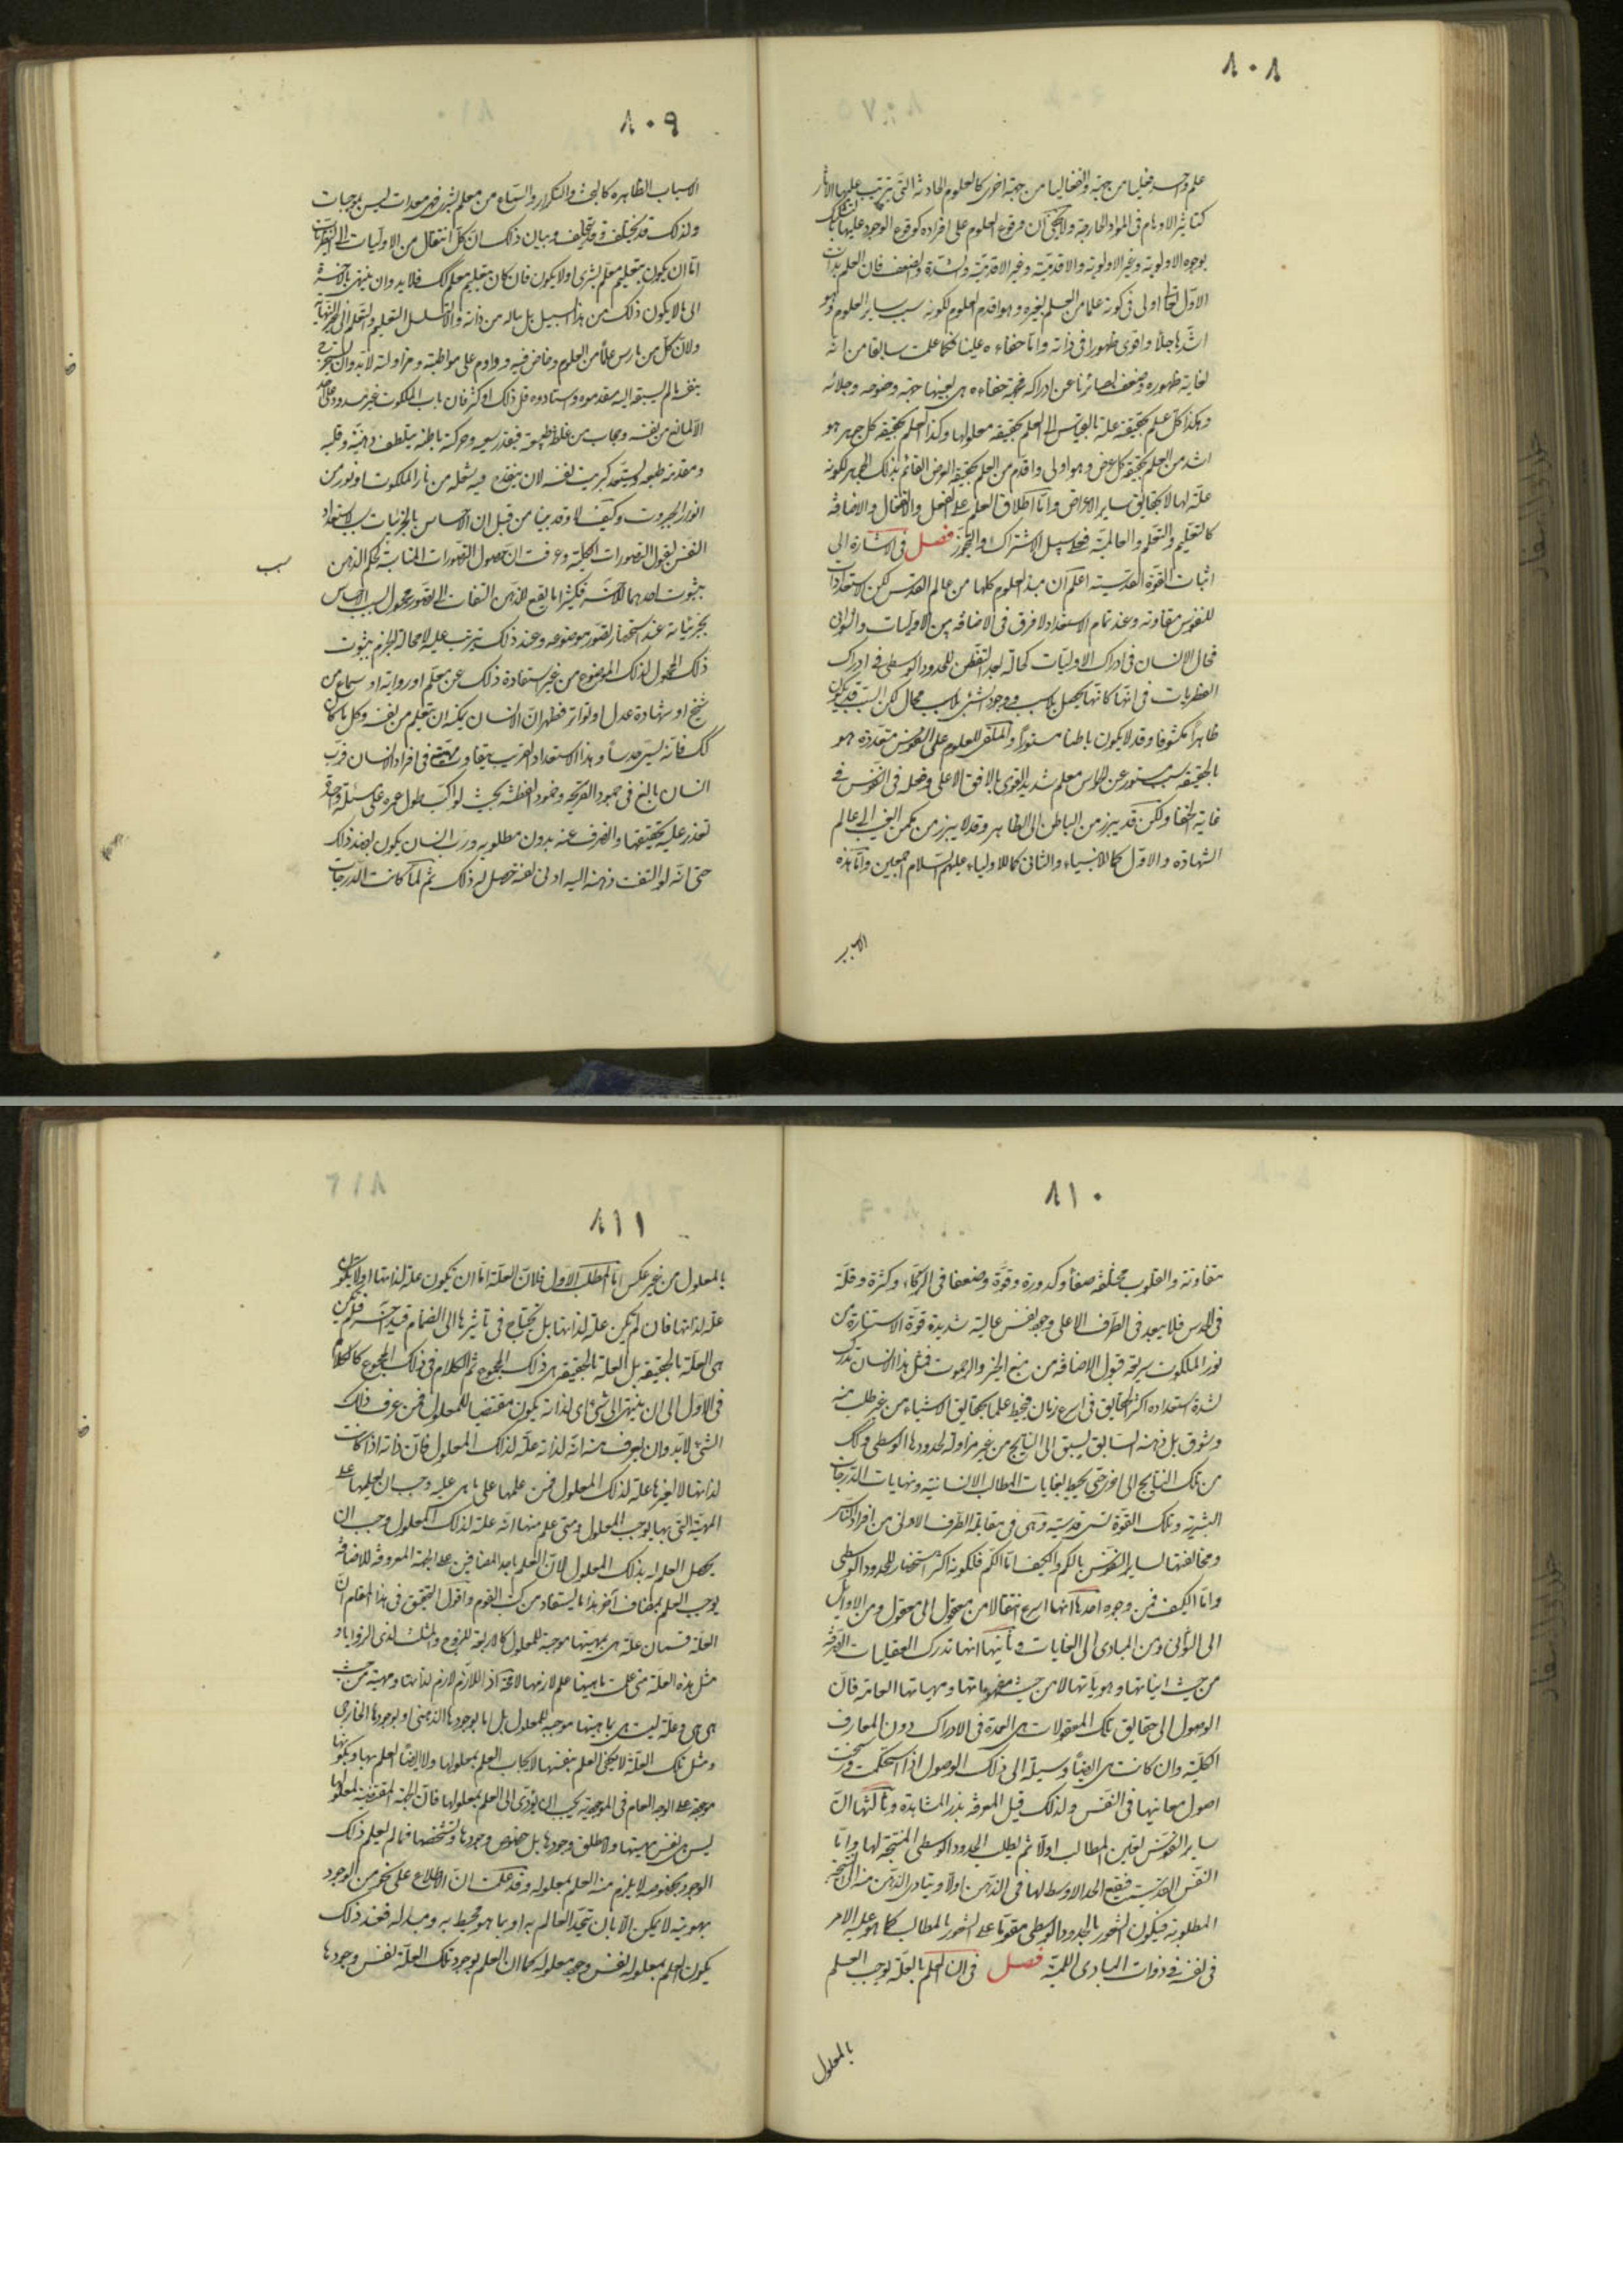 ٨٠٨
علم واحد فعليا من جهة وانفعاليا من جهة اخرى كالعلوم الحادثة التى يترتب عليها الآثار
كتاثير الاوهام فى المواد الخارجية ولا يخفى ان وقوع العلوم على افراده كوقوع الوجود عليها بالتشكيك
بوجوه الاولوية وغير الاولوية والاقدمية وغير الاقدمية والشدة والضعف فان العلم بذات
الاول تعالى اولى فى كونه علما من العلم بغيره وهو اقدم العلوم لكونه سبب ساير العلوم وهو
اشدها جلاء واقوى ظهورا فى ذاته واما خفاءه علينا فكما علمت سابقا من انه
لغاية ظهوره وضعف بصائرنا عن ادراكه فجهة خفاءه هى بعينها جهة وضوحه وجلائه
وهكذا كل علم بحقيقة علة بالقياس الى العلم بحقيقة معلولها وكذا العلم بحقيقة كل جوهر هو
اشد من العلم بحقيقة كل عرض وهو اولى واقدم من العلم بحقيقة العرض القائم بذلك الجوهر لكونه
علة لها لا بحقايق ساير الاعراض واما اطلاق العلم على الفعل والانفعال والاضافة
كالتعليم والتعلم والعالمية فعلى سبيل الاشتراك والتجوز فصل فى الاشارة الى
اثبات القوة القدسية اعلم ان مبدا العلوم كلها من عالم القدس لكن استعدادات
النفوس متفاوتة وعند تمام الاستعداد لا فرق فى الاضافة بين الاوليات والثوانى
فحال الانسان فى ادراك الاوليات كحاله بعد التفطن للحدود الوسطى فى ادراك
النظريات فى انها كانها تحصل بلا سبب ووجود الشئ بلا سبب محال لكن السبب قد يكون
ظاهرا مكشوفا وقد لا يكون باطنا مستورا والملقى للعلوم على النفوس المستعدة هو
بالحقيقة سبب مستور عن الحواس معلم شديد القوى بالافق الاعلى وفعله فى النفس فى
غاية الخفاء ولكن قد يبرز من الباطن الى الظاهر وقد لا يبرز من مكمن الغيب الى عالم
الشهادة والاول كما للانبياء والثانى كما للاولياء عليهم السلام اجمعين واما هذه
٨٠٩
الاسباب الظاهرة كالبحث والتكرار والسماع من معلم بشرى فهى معدات ليس بموجبات
ولذلك قد يختلف وقد يتخلف وبيان ذلك ان كل انتقال من الاوليات الى النظريات
اما ان يكون بتعليم معلم بشرى او لا يكون فان كان بتعليم معلم كك فلا بد وان ينتهى بالآخرة
الى ما لا يكون ذلك من هذا السبيل بل يناله من ذاته والا لتسلسل التعليم والتعلم الى غير النهاية
ولان كل من مارس علما من العلوم وخاض فيه وداوم على مواظبته ومزاولته لا بد وان يستخرج
بنفسه ما لم يسبقه اليه متقدموه واستادوه قل ذلك او كثر فان باب الملكوت غير مسدود على احد
الا لمانع من نفسه وحجاب من غلظ طبيعته فبقدر سعيه وحركة باطنه يتلطف ذهنه وقلبه
ومقدحة طبعه ويستعد كبريت نفسه لان ينقدح فيه شعلة من نار الملكوت او نور من
انوار الجبروت وكيف لا وقد بينا من قبل ان الاحساس بالجزئيات سبب لاستعداد
النفس لقبول التصورات الكلية وعرفت ان حصول التصورات المتناسبة لحكم الذهن
بثبوت احدهما للآخر فكثيرا ما يقع للذهن التفات الى تصور محمول بسبب الاحساس
بجزئياته عند استحضار تصور موضوعه وعند ذلك يترتب عليه لا محالة الجزم بثبوت
ذلك المحمول لذلك الموضوع من غير استفادة ذلك عن معلم او رواية او سماع من
شيخ او شهادة عدل او تواتر فظهر ان الانسان يمكنه ان يتعلم من نفسه وكل ما كان
كك فانه يسمى حدسا وهذا الاستعداد القريب يتفاوت فى افراد الانسان فرب
انسان بالغ فى جمود القريحة وخمود الفطنة بحيث لو اكب طول عمره على مسئلة واحدة
تعذر عليه تحقيقها وانصرف عنه بدون مطلوبه ورب انسان يكون بضد ذلك
حتى انه لو التفت ذهنه اليه ادنى لفتة حصل له ذلك ثم لما كانت الدرجات
٨١٠
متفاوتة والقلوب مختلفة صفاء وكدورة وقوة وضعفا فى الزكاء وكثرة وقلة
فى الحدس فلا يبعد فى الطرف الاعلى وجود نفس عالية شديدة قوة الاستنارة من
نور الملكوت سريعة قبول الافاضة من منبع الخير والرحموت فمثل هذا الانسان يدرك
لشدة استعداده اكثر الحقايق فى اسرع زمان فيحيط علما بحقايق الاشياء من غير طلب منه
وشوق بل ذهنه السابق يسبق الى النتايج من غير مزاولة لحدودها الوسطى وكك
من تلك النتايج الى اخرى حتى يحيط بغايات المطالب الانسانية ونهايات الدرجات
البشرية وتلك القوة تسمى قدسية وهى فى مقابلة الطرف الادنى من افراد الناس
ومخالفتها لساير النفوس بالكم والكيف اما الكم فلكونه اكثر استحضارا للحدود الوسطى
واما الكيف فمن وجوه احدها انها اسرع انتقالا من معقول الى معقول ومن الاوايل
الى الثوانى ومن المبادى الى الغايات وثانيها انها تدرك العقليات الصرفة
من حيث انياتها وهوياتها لا من حيث مفهوماتها ومهياتها العامة فان
الوصول الى حقايق تلك المعقولات هى العمدة فى الادراك دون المعارف
الكلية وان كانت هى ايضا وسيلة الى ذلك الوصول اذا استحكمت ورسخت
اصول معانيها فى النفس ولذلك قيل المعرفة بذر المشاهدة وثالثها ان
ساير النفوس تعين المطالب اولا ثم يطلب الحدود الوسطى المنتجة لها واما
النفس القدسية فيقع الحد الاوسط لها فى الذهن اولا ويتادى الذهن منه الى النتيجة
المطلوبة فيكون الشعور بالحدود الوسطى مقدما على الشعور بالمطالب كما هو عليه الامر
فى نفسه فى ذوات المبادى اللمية فصل فى ان العلم بالعلة يوجب العلم
بالمعلول
٨١١
بالمعلول من غير عكس اما المطلب الاول فلان العلة اما ان تكون علة لذاتها او لا تكون
علة لذاتها فان لم تكن علة لذاتها بل تحتاج فى تاثيرها الى انضمام قيد آخر فلم تكن
هى العلة بالحقيقة بل العلة بالحقيقة هى ذلك المجموع ثم الكلام فى ذلك المجموع كالكلام
فى الاول الى ان ينتهى الى شئ هى لذاته يكون مقتضيا للمعلول فمن عرف ذلك
الشئ لا بد وان يعرف منه انه لذاته علة لذلك المعلول فان ذاته اذا كانت
لذاتها لا لغيرها علة لذلك المعلول فمن علمها على ما هى عليه وجب ان يعلمها على
المهية التى بها يوجب المعلول ومتى علم منها انه علة لذلك المعلول وجب ان
يحصل العلم له بذلك المعلول لان العلم باحد المضافين على الجهة المعروفة للاضافة
يوجب العلم بمضاف آخر هذا ما يستفاد من كتب القوم واقول التحقيق فى هذا المقام ان
العلة قسمان علة هى بمهيتها موجبة للمعلول كالاربعة للزوج والمثلث لذى الزوايا و
مثل هذه العلة متى علمت ماهيتها علم لازمها لا محة اذ اللازم لازم لذاتها ومهيته من حيث
هى هى وعلة ليست هى بماهيتها موجبة للمعلول بل اما بوجودها الذهنى او بوجودها الخارجى
ومثل تلك العلة لا يكفى العلم بنفسها لايجاب العلم بمعلولها ولا ايضا العلم بها وبكونها
موجبة على الوجه العام فى الموجودية يجب ان يؤدى الى العلم بمعلولها فان الجهة المقتضية لمعلولها
ليس هى نفس مهيتها ولا مطلق وجودها بل خصوص وجودها وتشخصها فما لم يعلم ذلك
الوجود بخصوصه لا يلزم منه العلم بمعلوله وقد علمت ان الاطلاع على نحو من الوجود
بهويته لا يمكن الا بان يتحد العالم به او بما هو محيط به ومبدا له فعند ذلك
يكون العلم بمعلوله نفس وجود معلوله كما ان العلم بوجود تلك العلة نفس وجودها